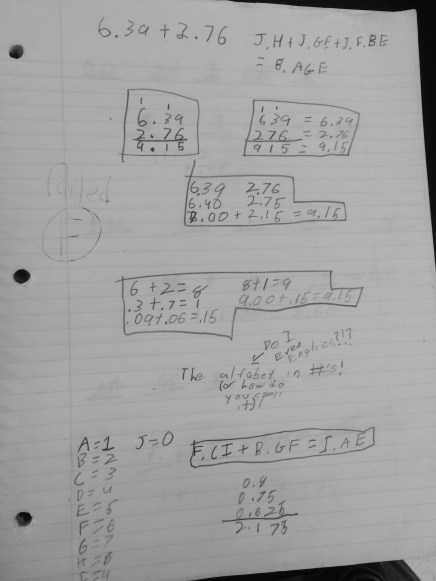 6.39+2.76
J.H+J.GE+J.F.BE
= B.AGE
1 1
6.39
2.76
9.15
1 1
639 = 6.39
276 = 2.76
915 = 9.15
Failed
F
6.39 2.76
6.40 2.75
7.00 + 2.15 = 9.15
6+2=8 8+1=9
.3+.7=1 9.00+.15=9.15
.09+.06=.15
Do I
Even
English?!?
The alfabet in #'s!
(or how do
you spell
it?)
A=1 J=0
B=2
C=3
D=4
E=5
F=6
G=7
H=8
I=9
F.CI + B.GF = I.AE
0.8
0.75
0.625
2.175